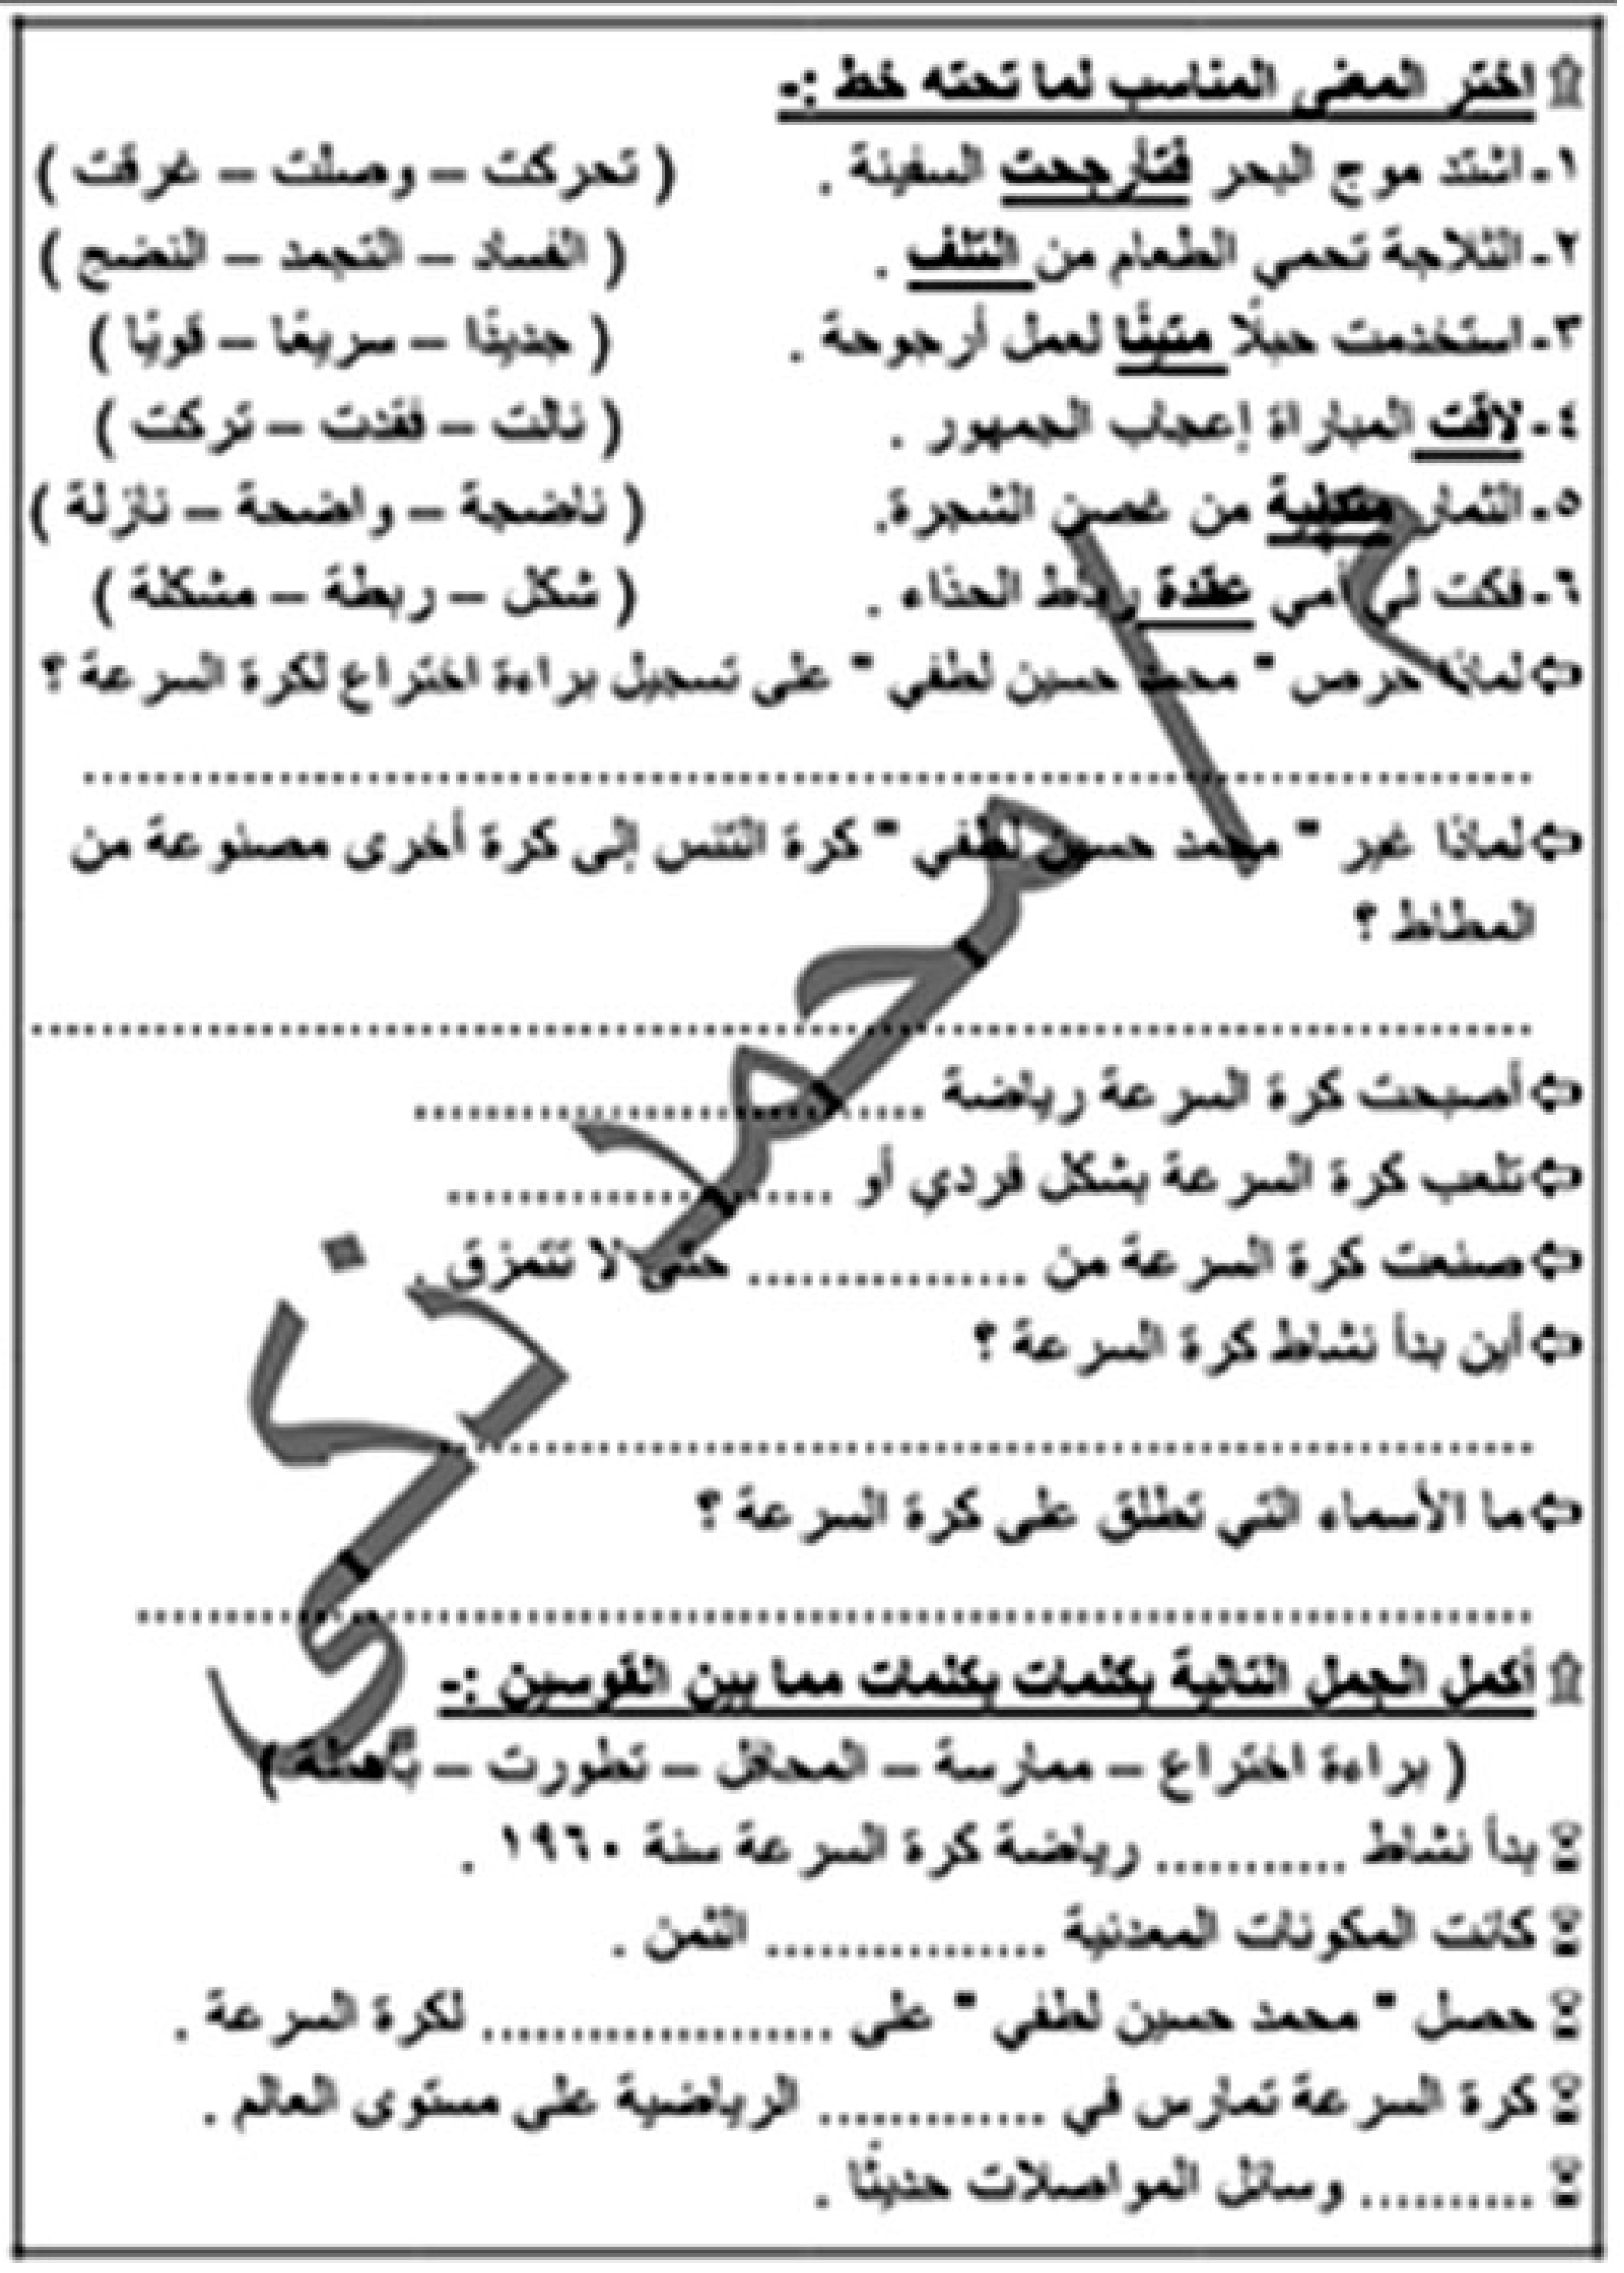 اختر المعنى المناسب لما تحته خط :-
١- اشتد موج البحر فتأرجحت السفينة . ( تحركت – وصلت – غرقت )
٢- الثلاجة تحمي الطعام من التلف . ( الفساد – التجمد – النضج )
٣- استخدمت حبلًا متينًا لعمل أرجوحة . ( جديدًا – سريعًا – قويًا )
٤- لاقت المباراة إعجاب الجمهور . ( نالت – فقدت – تركت )
٥- الثمار متدلية من غصن الشجرة. ( ناضجة – واضحة – نازلة )
٦- فكت لي أمي عقدة رباط الحذاء . ( شكل – ربطة – مشكلة )
لماذا حرص " محمد حسين لطفي " على تسجيل براءة اختراع لكرة السرعة ؟
لماذا غير " محمد حسين لطفي " كرة التنس إلى كرة أخرى مصنوعة من
المطاط ؟
أصبحت كرة السرعة رياضة ....................
تلعب كرة السرعة بشكل فردي أو ....................
صنعت كرة السرعة من .................... حتى لا تتمزق .
أين بدأ نشاط كرة السرعة ؟
ما الأسماء التي تطلق على كرة السرعة ؟
أكمل الجمل التالية بكلمات بكلمات مما بين القوسين :-
( براءة اختراع – ممارسة – المحافل – تطورت – باهظة )
بدأ نشاط ........... رياضة كرة السرعة سنة ١٩٦٠ .
كانت المكونات المعدنية ................ الثمن .
حصل " محمد حسين لطفي " على .................... لكرة السرعة .
كرة السرعة تمارس في ............. الرياضية على مستوى العالم .
.......... وسائل المواصلات حديثًا .